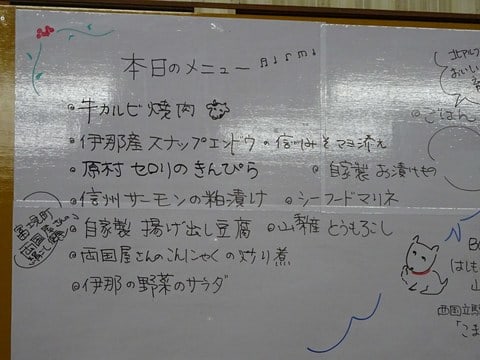 本日のメニュー
牛カルビ焼肉
伊那産スナップエンドウ・信州みそマヨ添え
原村セロリのきんぴら ・自家製お漬けもの
信州サーモンの粕漬け ・シーフードマリネ
自家製 揚げ出し豆腐 ・山梨産とうもろこし
両国屋さんのこんにゃくの炒り煮
伊那の野菜のサラダ
北アルプ
おいし
・ごはん
はじも
山
西国立駅
「こま